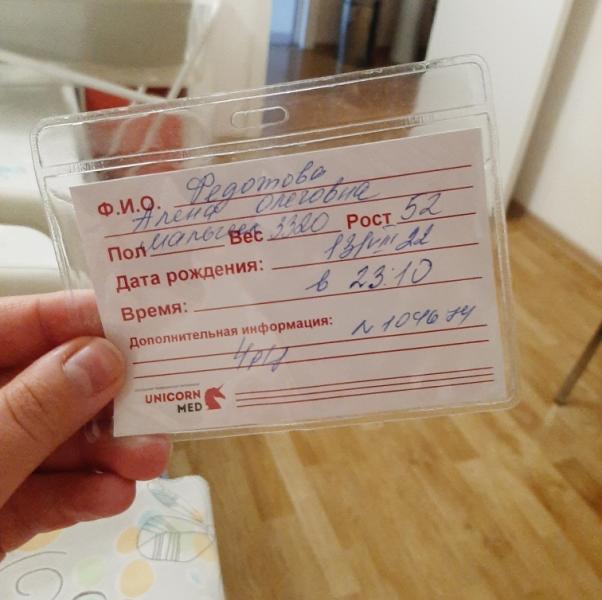 Ф.И.О. Федотова
Алена Олеговна
Пол мальчик Вес 3320 Рост 52
Дата рождения: 13/VIII 22
Время: в 23.10
Дополнительная информация: N 1046
UNICORN
MED